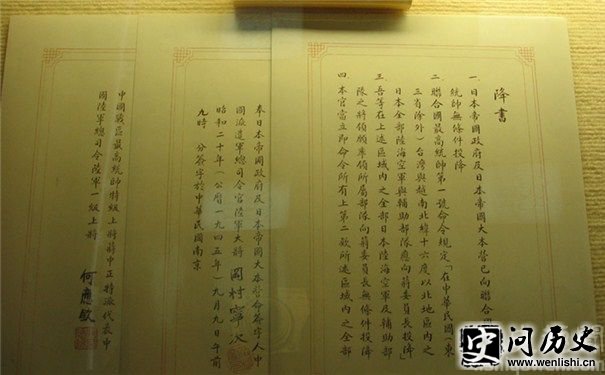 降書
一 日本帝國政府及日本帝國大本營已向聯合
統帥無條件投降
二 聯合國最高統帥第一號命令規定「在中華民國(東
三省除外)台灣與越南北緯十六度以北地區內之
日本全部陸海空軍與輔助部隊應向蔣委員長投降」
三 吾等在上述區域內之全部日本陸海空軍及輔助部
隊之將領願率領所屬部隊向蔣委員長無條件投降
四 本官當立即命令所有上第二款所述區域內之全部
奉日本帝國政府及日本帝國大本營命簽字人中
國派遣軍總司令官陸軍大將 岡村寧次
昭和二十年(公曆一九四五年)九月九日午前
九時 分簽字於中華民國南京
中國戰區最高統帥特級上將蔣中正特派代表中
國陸軍總司令陸軍一級上將
何應欽
问历史
www.wenlishi.com